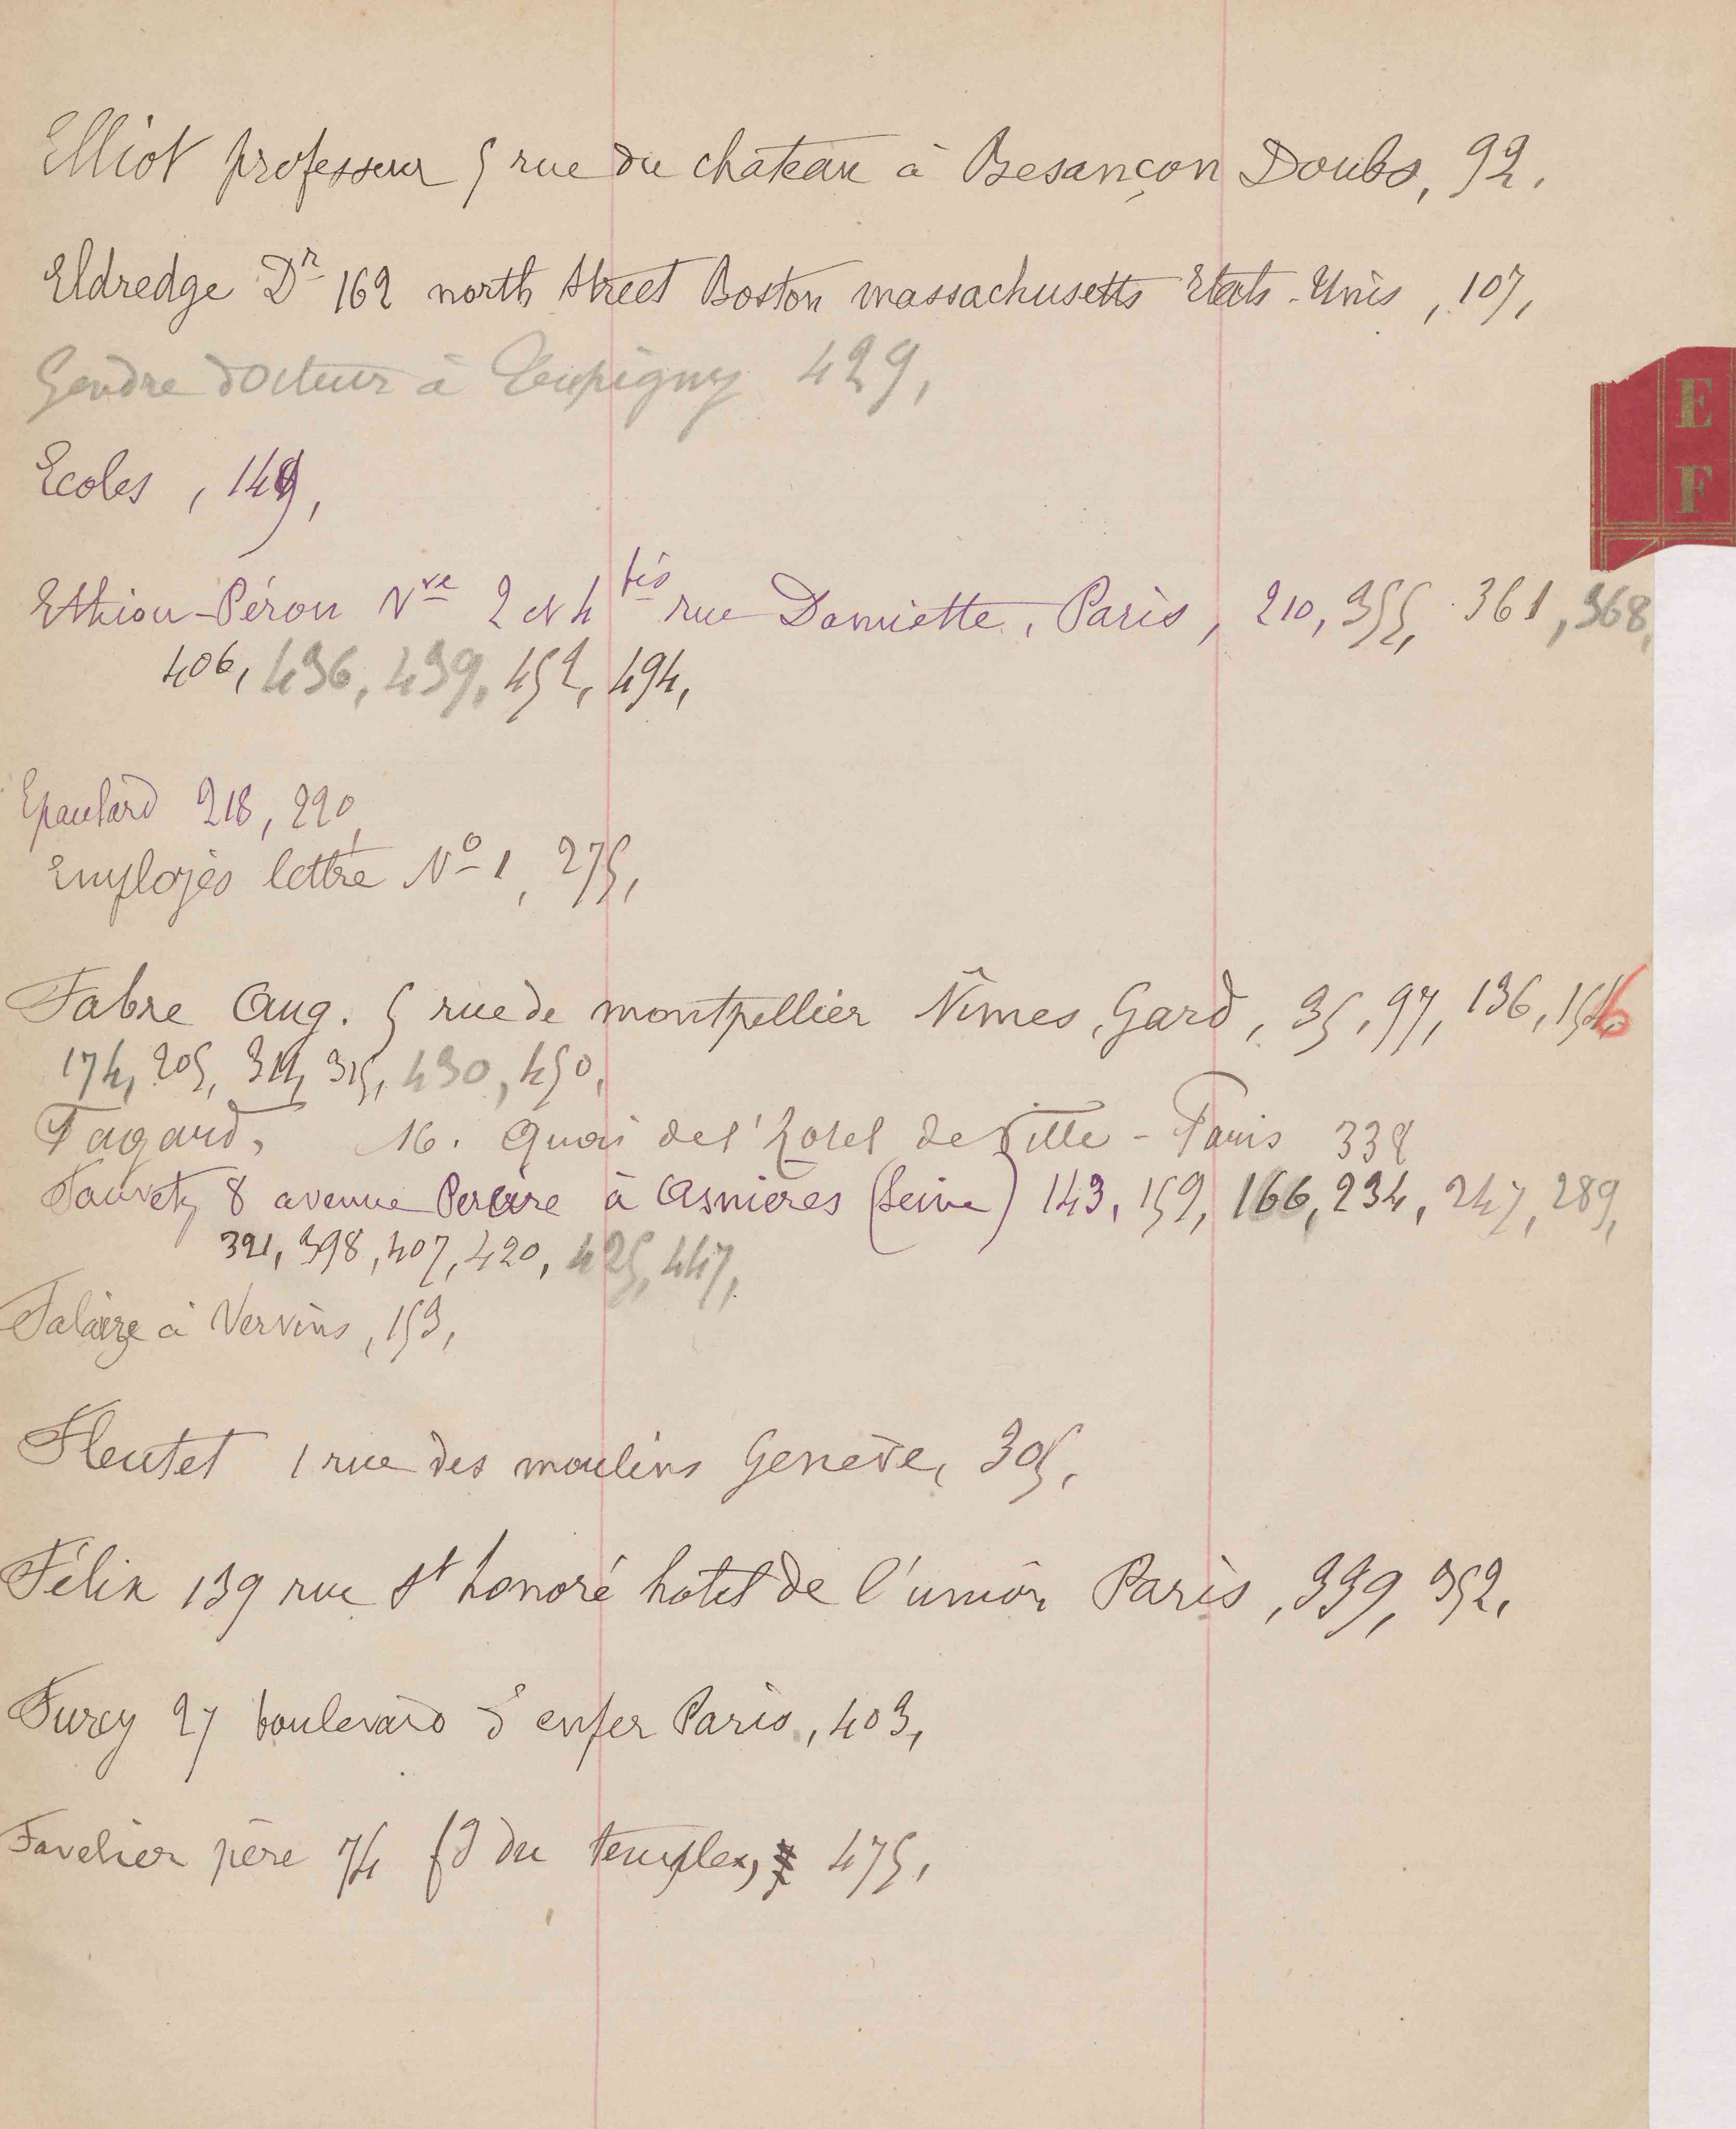 Elliot professeur 5 rue du chateau à Besançon Doubs, 92.
Eldredge Dr 162 north street Boston massachusetts Etats-Unis, 107,
Gendre docteur à 429,
E
F
Ecoles, 149,
Ethiou-Péron Vve 2 et 4 bis rue Damiette, Paris, 210, 355, 361, 368,
406, 436, 439, 452, 494,
Epaulard 218, 220,
Employés lettre No 1, 275,
Fabre Aug. 5 rue de montpellier Nîmes, Gard, 35, 97, 136,
174, 205, 315, 430, 450,
Fagard, 16. Quai de l'hotel de Ville - Paris 338
Fauvety 8 avenue Pereire à Asnières (Seine) 143, 159, 166, 234, 247, 289,
391, 398, 407, 420, 425, 447,
à Vervins, 153,
Fleutet 1 rue des moulins Genève, 305,
Félix 139 rue St honoré hotel de l'union Paris, 339, 352,
Furcy 27 boulevard d'enfer Paris, 403,
Favelier père 74 fg du temple, 475,